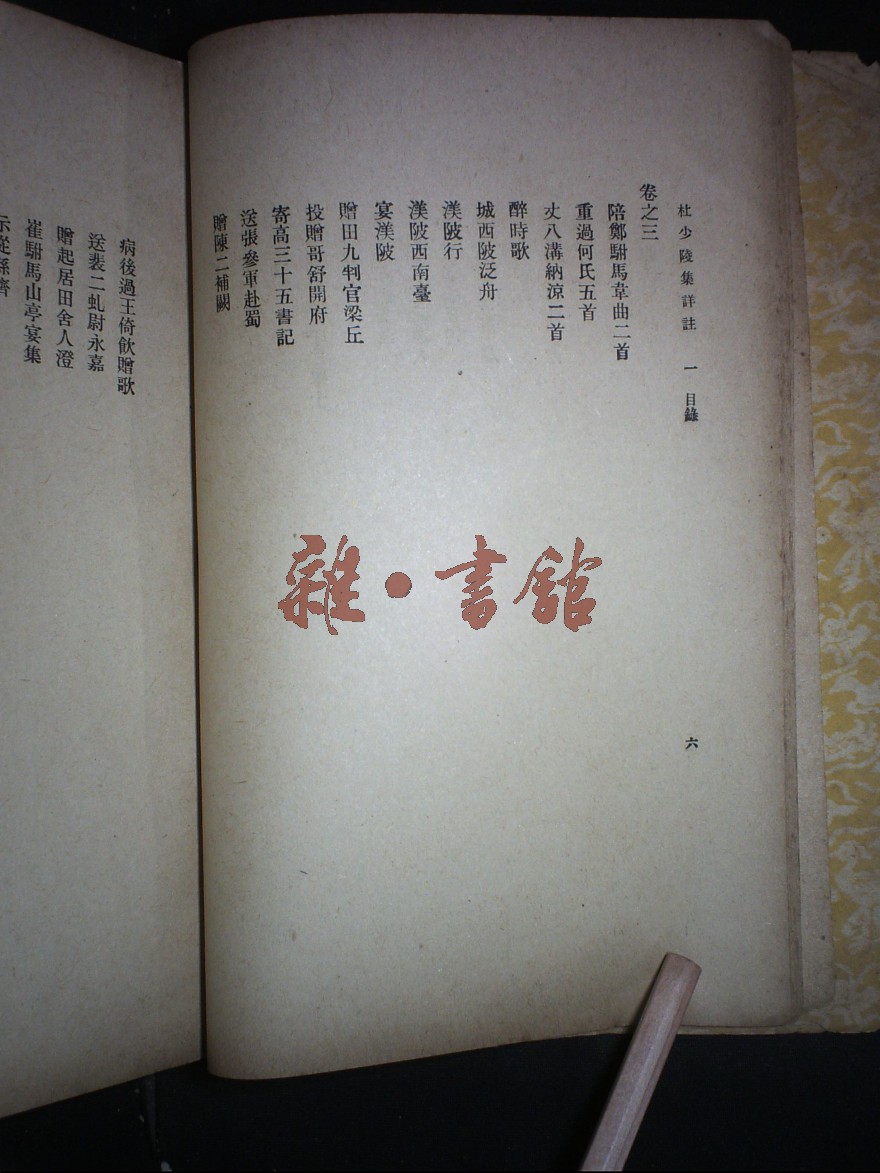 杜少陵集詳註　一　目錄
六
卷之三
陪鄭駙馬韋曲二首
重過何氏五首
丈八溝納涼二首
醉時歌
城西陂泛舟
渼陂行
渼陂西南臺
宴渼陂
贈田九判官梁丘
投贈哥舒開府
寄高三十五書記
送張參軍赴蜀
贈陳二補闕
病後過王倚飲贈歌
送裴二虬尉永嘉
贈起居田舍人澄
崔駙馬山亭宴集
示從孫濟
雜·書館